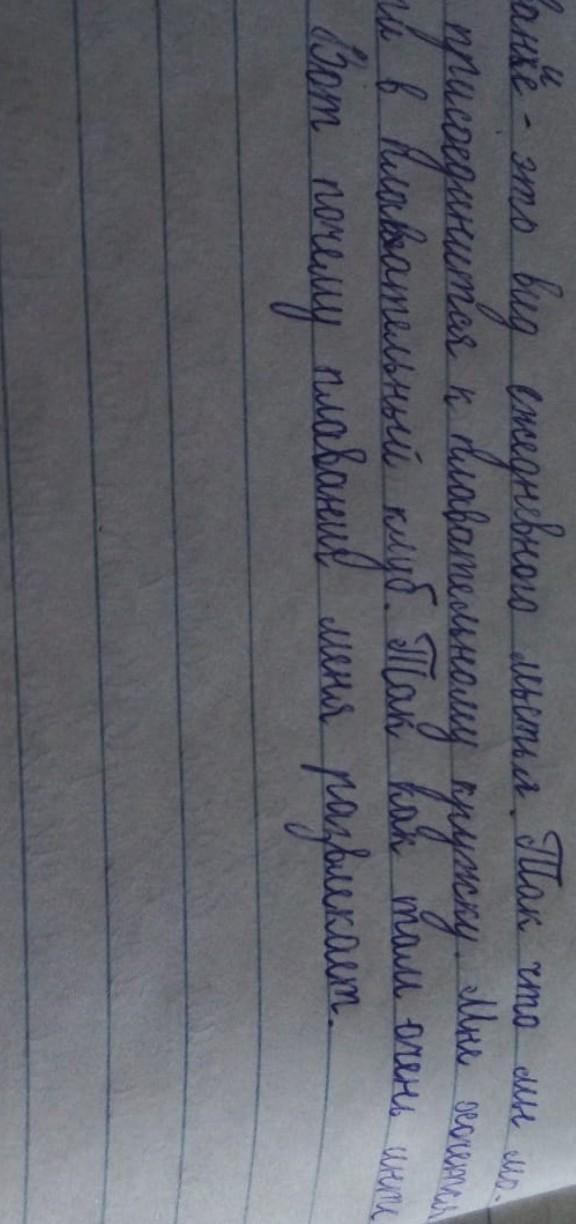 - это вид ежедневного мытья. Так что мы мо-
присоединится к плавательному кружку. Мне хочется
в плавательный клуб. Так как там очень инте
Вот почему плавание меня развлекает.